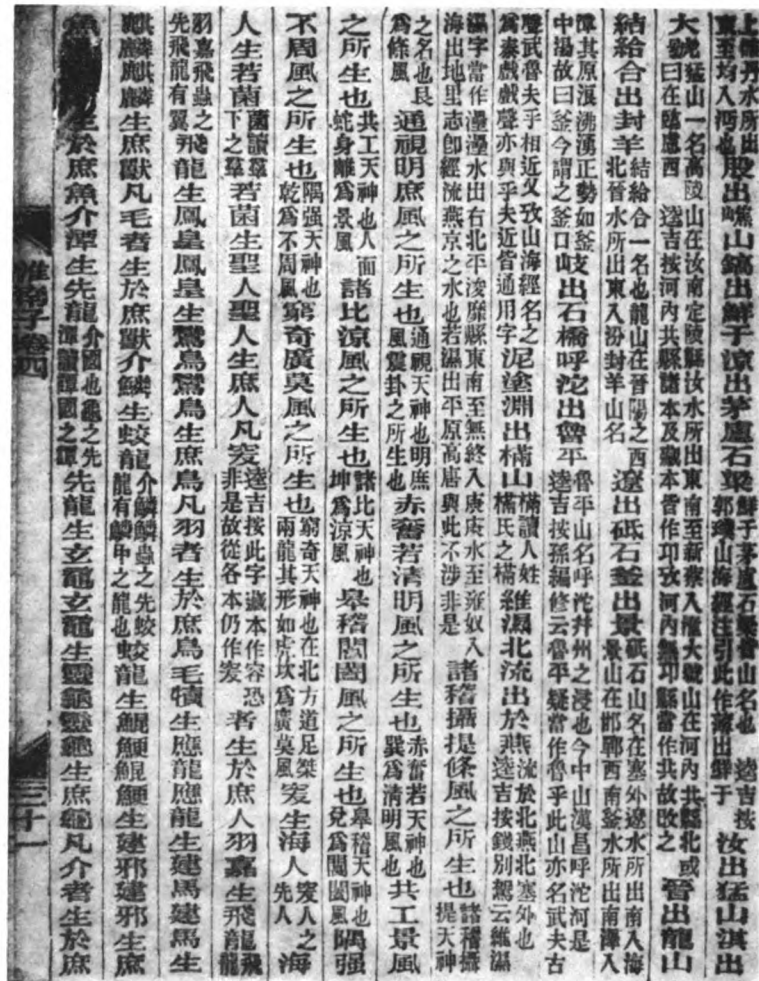 上雒丹水所出
東至均入沔也
股出嶕山鎬出鮮于涼出茅盧石梁
鮮于茅盧石梁皆山名也 逵吉按
郭璞山海經注引此作薄出鮮于
汝出猛山淇出
大號
猛山一名高陵山在汝南定陵縣汝水所出東南至新蔡入淮大號山在河內共縣北或
曰在臨慮西 逵吉按河內共縣諸本及藏本皆作邛攷河內無邛縣當作共故改之
晉出龍山
結給合出封羊
結給合一名也龍山在晉陽之西
北晉水所出東入汾封羊山名
遼出砥石釜出景
砥石山名在塞外遼水所出南入海
景山在邯鄲西南釜水所出南澤入
漳其原浪沸湧正勢如釜
中湯故曰釜今謂之釜口
岐出石橋呼沱出魯平
魯平山名呼沱并州之浸也今中山漢昌呼沱河是
逵吉按孫編修云魯平疑當作魯乎此山亦名武夫古
聲武魯夫乎相近又攷山海經名之
為泰戲戲聲亦與乎夫近皆通用字
泥塗淵出樠山
樠讀人姓
樠氏之樠
維濕北流出於燕
流於北燕北塞外也
逵吉按錢別駕云維濕
濕字當作灅灅水出右北平浚靡縣東南至無終入庚庚水至雍奴入
海出地里志卽經流燕京之水也若濕出平原高唐與此不涉非是
諸稽攝提條風之所生也
諸稽攝
提天神
之名也艮
為條風
通視明庶風之所生也
通視天神也明庶
風震卦之所生也
赤奮若清明風之所生也
赤奮若天神也
巽為清明風也
共工景風
之所生也
共工天神也人面
蛇身離為景風
諸比涼風之所生也
諸比天神也
坤為涼風
皋稽閶闔風之所生也
皋稽天神也
兌為閶闔風
隅强
不周風之所生也
隅强天神也
乾為不周風
窮奇廣莫風之所生也
窮奇天神也在北方道足桀
兩龍其形如虎坎為廣莫風
㝧生海人
㝧人之
先人
海
人生若菌
菌讀羣
下之羣
若菌生聖人聖人生庶人凡㝧
逵吉按此字藏本作容恐
非是故從各本仍作㝧
者生於庶人羽嘉生飛龍
飛
龍
羽嘉飛蟲之
先飛龍有翼
飛龍生鳳皇鳳皇生鸞鳥鸞鳥生庶鳥凡羽者生於庶鳥毛犢生應龍應龍生建馬建馬生
麒麟麒麟生庶獸凡毛者生於庶獸介鱗生蛟龍
介鱗鱗蟲之先蛟
龍有鱗甲之龍也
蛟龍生鯤鯁鯤鯁生建邪建邪生庶
魚
生於庶魚介潭生先龍
介國也龜之先
潭讀譚國之譚
先龍生玄黿玄黿生靈龜靈龜生庶龜凡介者生於庶
淮南子卷四
三十一